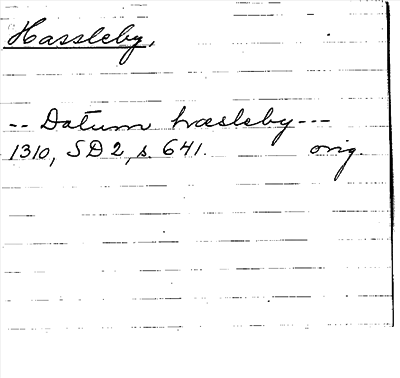 Hassleby,
-- Datum hæsleby ---
1310, SD 2, s. 641. orig.